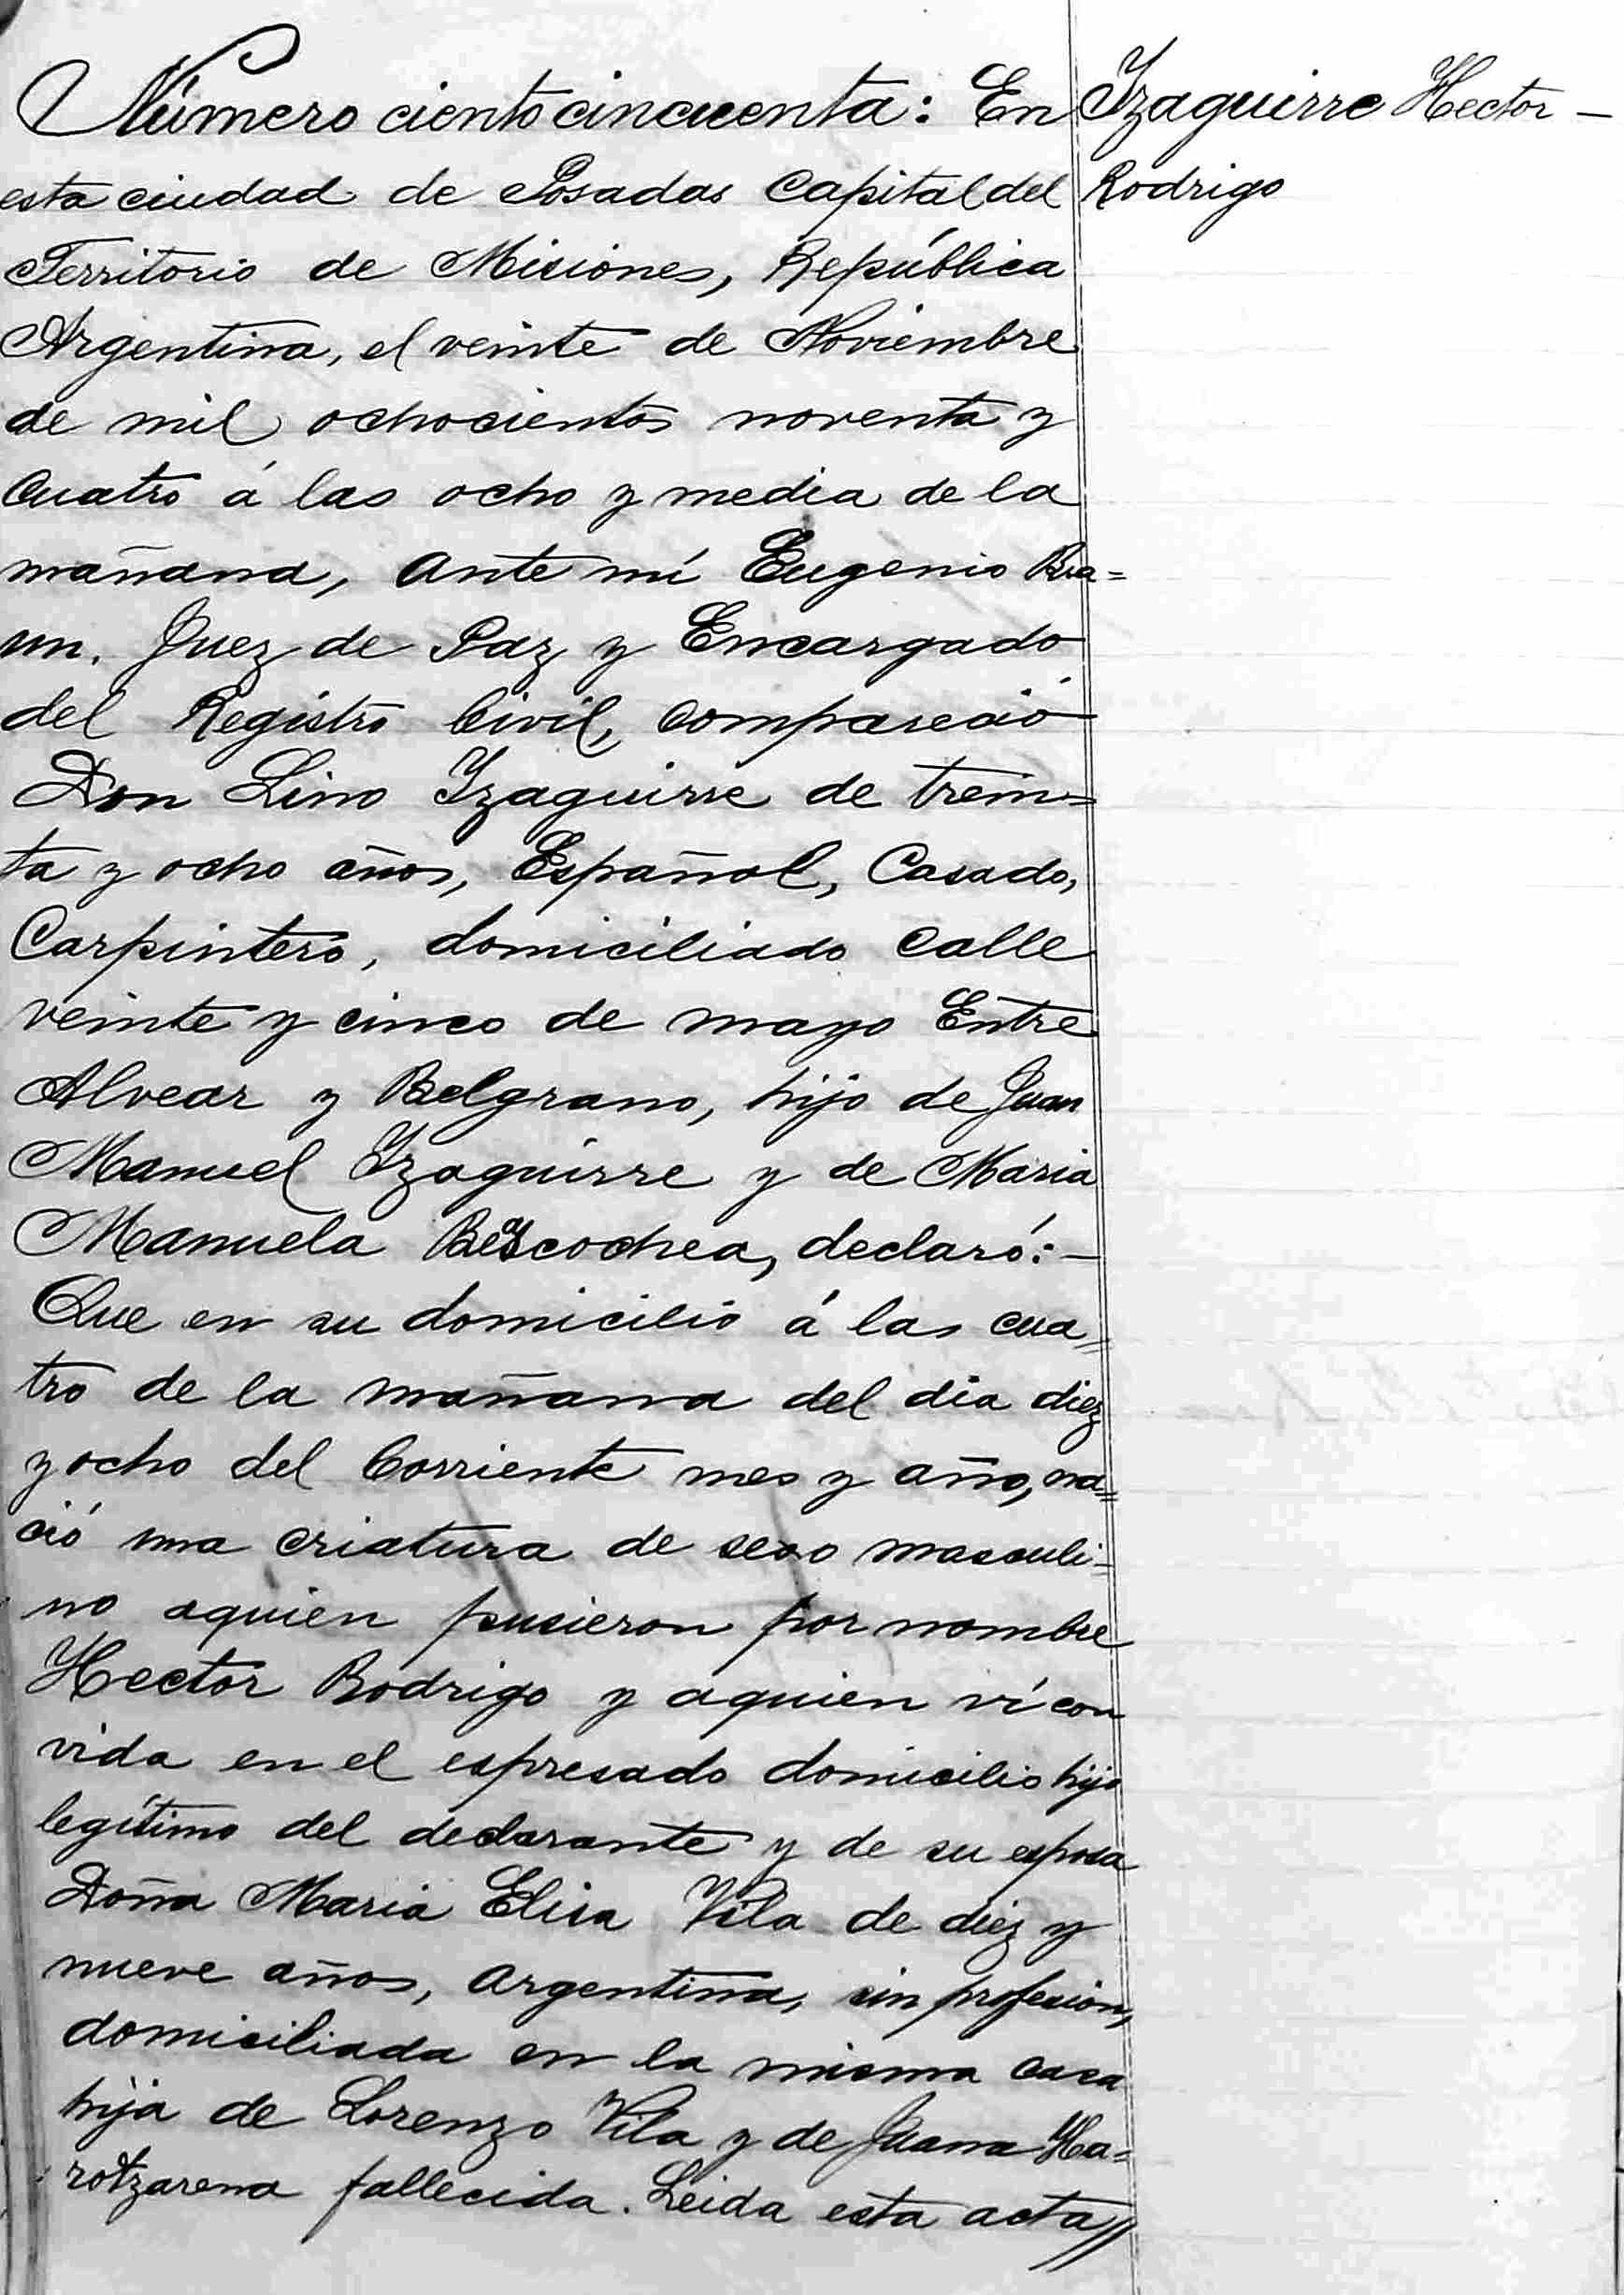 Número ciento cincuenta: En
esta ciudad de Posadas Capital del
Territorio de Misiones, República
Argentina, el veinte de Noviembre
de mil ochocientos noventa y
Cuatro á las ocho y media de la
mañana, Ante mí Eugenio Bra=
un. Juez de Paz y Encargado
del Registro Civil, compareció
Don Lino Yzaguirre de trein=
ta y ocho años, Español, Casado,
Carpintero, domiciliado Calle
veinte y cinco de mayo Entre
Alvear y Belgrano, hijo de Juan
Manuel Yzaguirre y de Maria
Manuela declaró:—
Que en su domicilio á las cua=
tro de la mañana del dia diez
y ocho del Corriente mes y año, na=
ció una criatura de sexo masculi=
no aquien pusieron por nombre
Hector Rodrigo y aquien ví con
vida en el espresado domicilio hijo
legítimo del declarante y de su esposa
Doña Maria Elisa Vila de diez y
nueve años, Argentina, sin profesion,
domiciliada en la misma casa
hija de Lorenzo Vila y de Juana Ha=
rotzarena fallecida. Leida esta acta//
Yzaguirre Hector —
Rodrigo